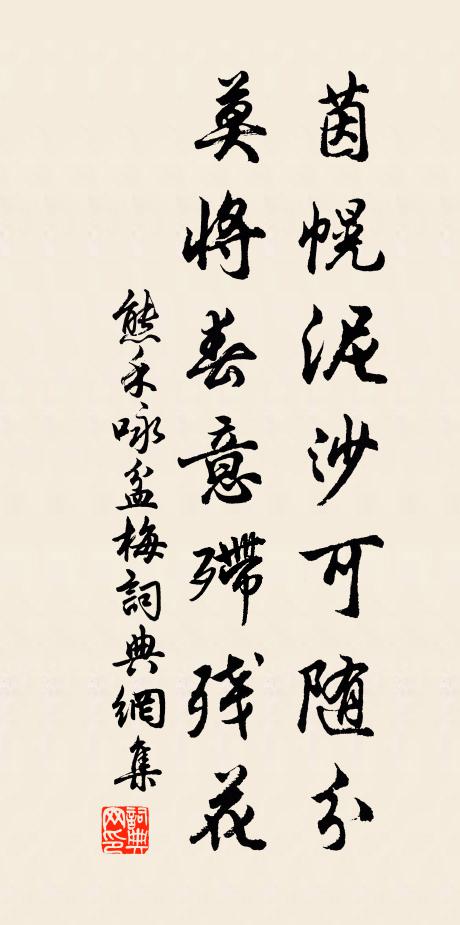 茵幌泥沙可随分
莫将春意殢残花
熊禾咏盆梅詞典網集
詞典网印